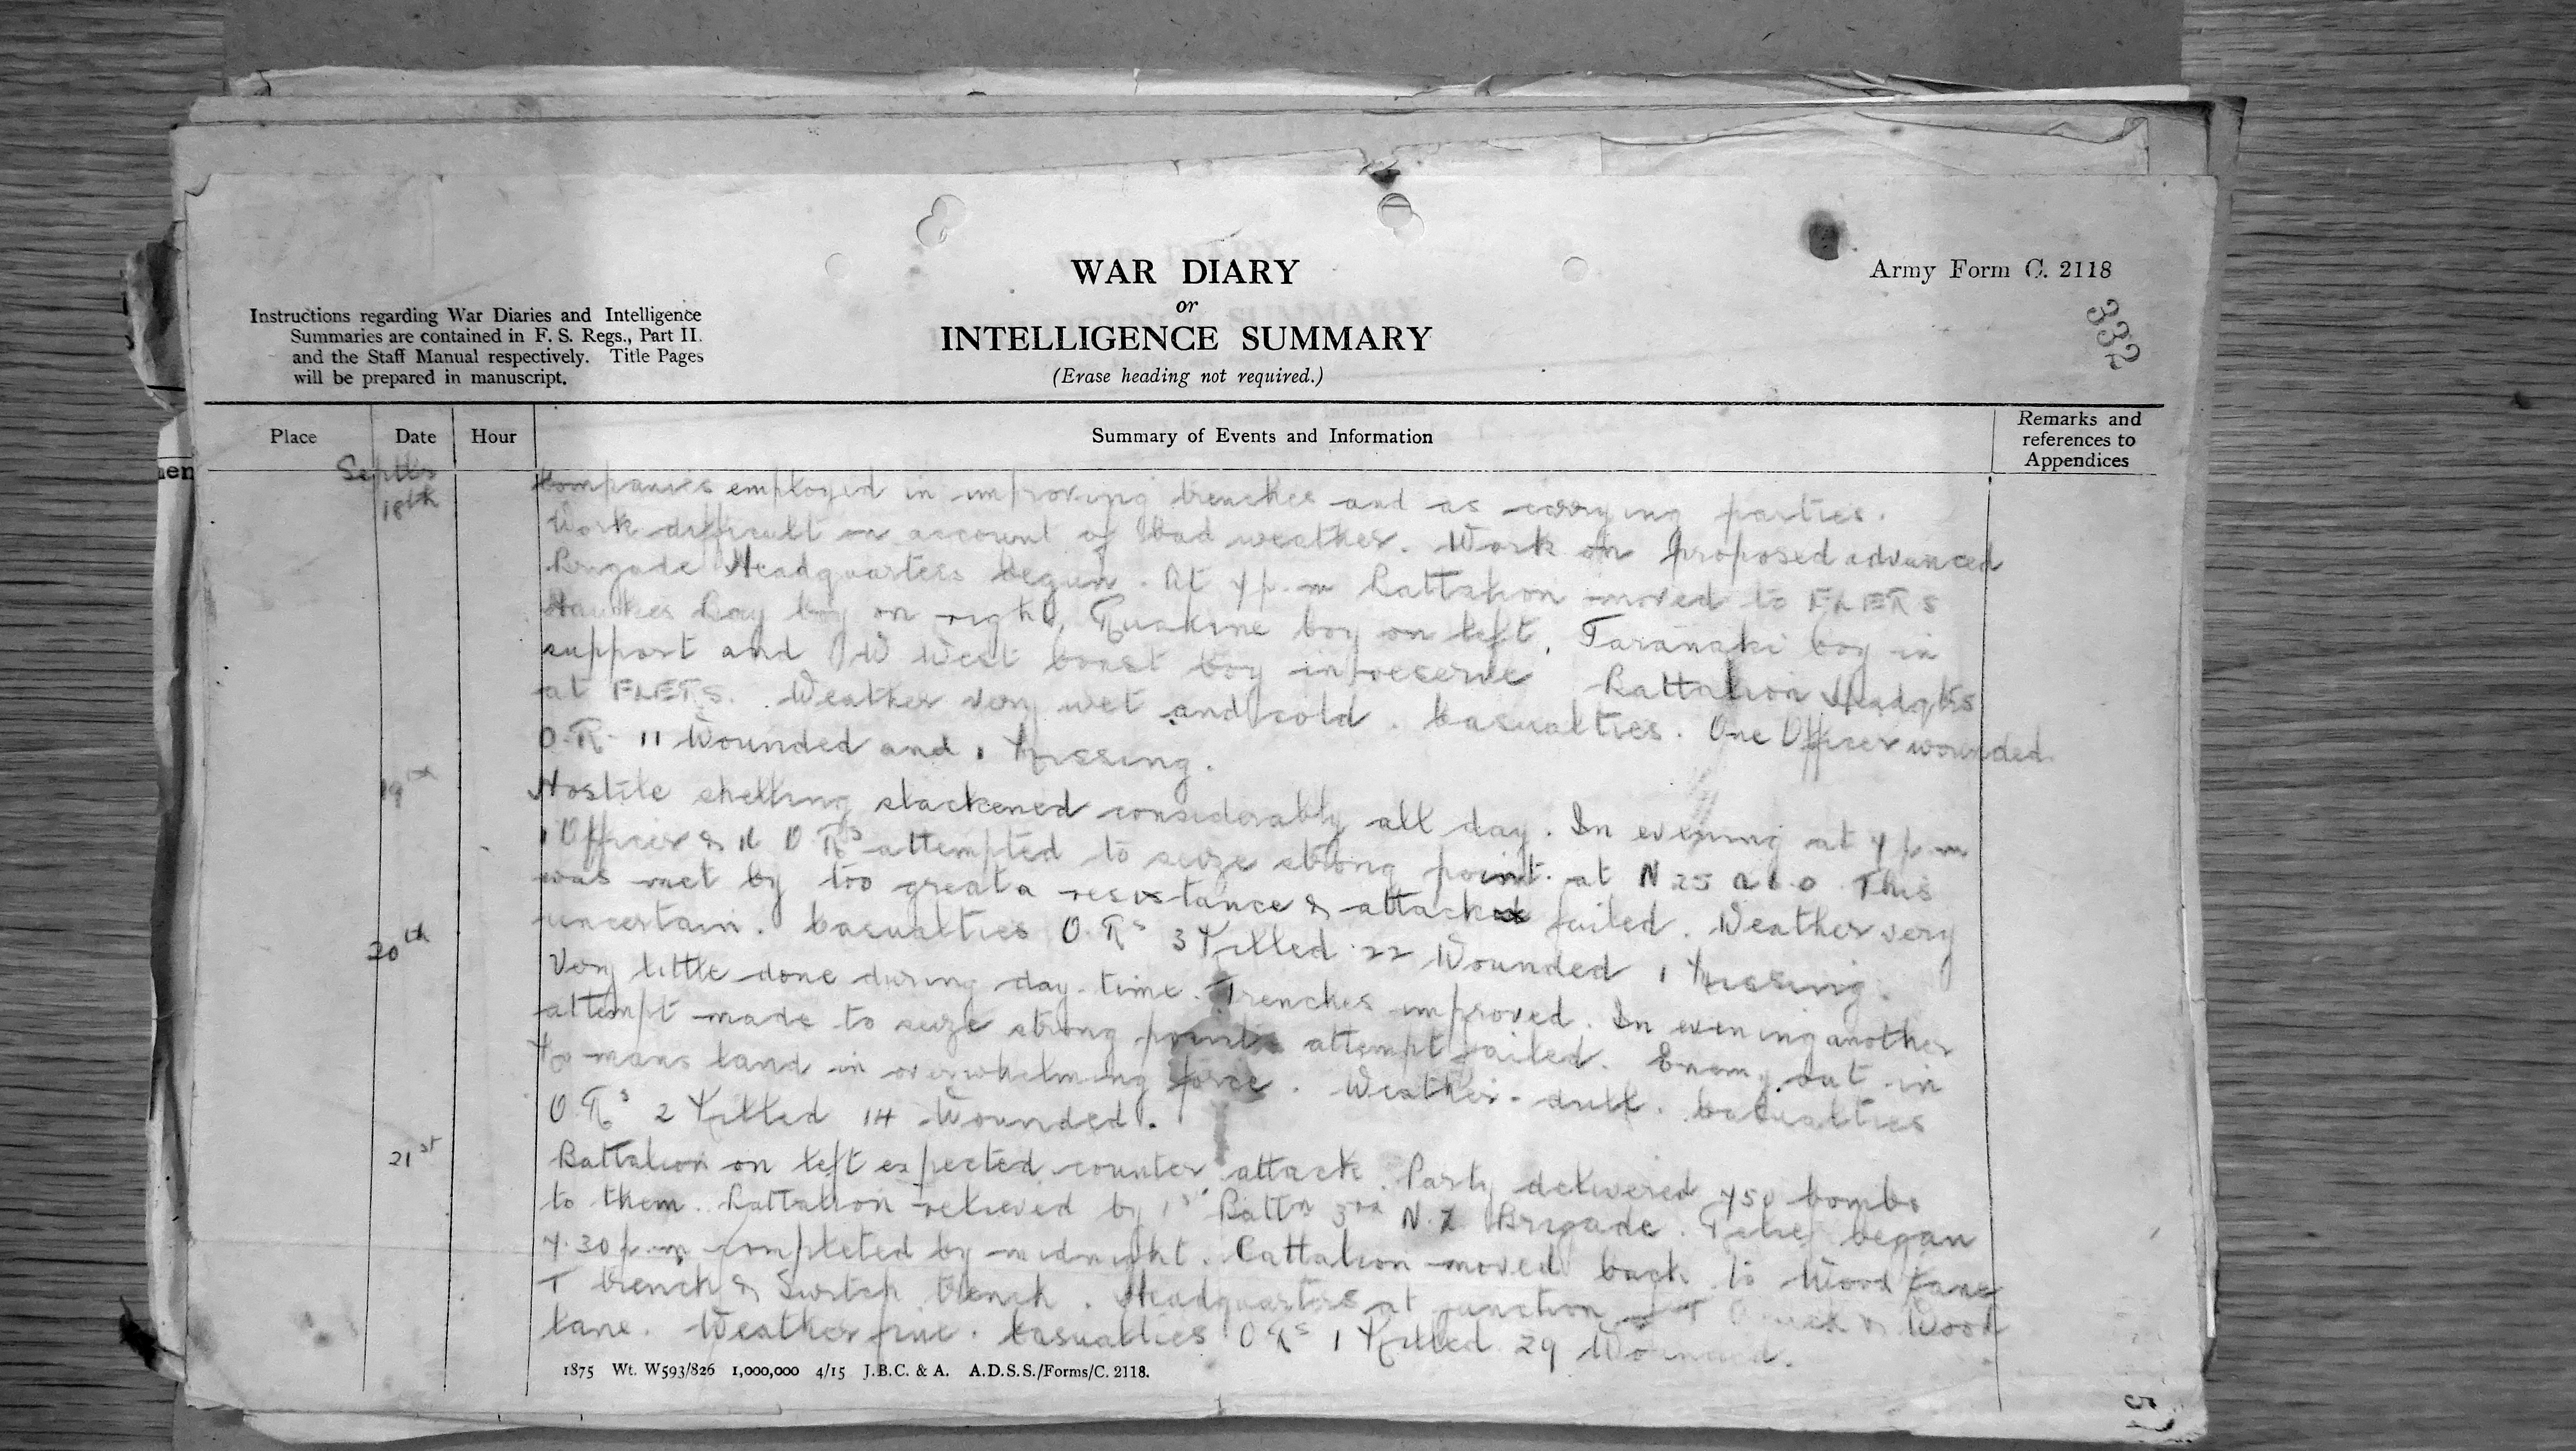 WAR DIARY
or
INTELLIGENCE SUMMARY
(Erase heading not required.)
Army Form C. 2118
332
Instructions regarding War Diaries and Intelligence
Summaries are contained in F. S. Regs., Part II.
and the Staff Manual respectively. Title Pages
will be prepared in manuscript.
Place Date Hour Summary of Events and Information Remarks and
references to
Appendices
18th Companies employed in improving trenches and as carrying parties.
Work difficult on account of bad weather. Work on proposed advanced
Brigade Headquarters begun. At 7 p.m Battalion moved to FLERS
Hawkes Bay Coy on right, Ruahine Coy on left, Taranaki Coy in
support and W West Coast Coy in reserve Battalion Headqrs
at FLERS. Weather very wet and cold. Casualties. One Officer wounded
O.R. 11 Wounded and 1 Missing.
19th Hostile shelling slackened considerably all day. In evening at 7 p.m
1 Officer & O Rs attempted to seize strong point at N 25 This
was met by too great a resistance & attack failed. Weather very
uncertain. Casualties O.Rs 3 Killed 22 Wounded 1 Missing.
20th Very little done during day-time. Trenches improved. In evening another
attempt made to seize strong point attempt failed. Enemy out in
No mans land in overwhelming force. Weather dull. Casualties
O.Rs 2 Killed 14 Wounded.
21st Battalion on left expected counter attack. Party delivered 750 bombs
to them. Battalion relieved by 1st Battn 3rd N.Z Brigade. Relief began
7.30 p.m completed by midnight. Battalion moved back to Wood Lane
T trench & Switch trench. Headquarters at junction of T & Wood
Lane. Weather fine. Casualties O Rs 1 Killed 29 Wounded.
1875 Wt. W593/826 1,000,000 4/15 J.B.C. & A. A.D.S.S./Forms/C. 2118.